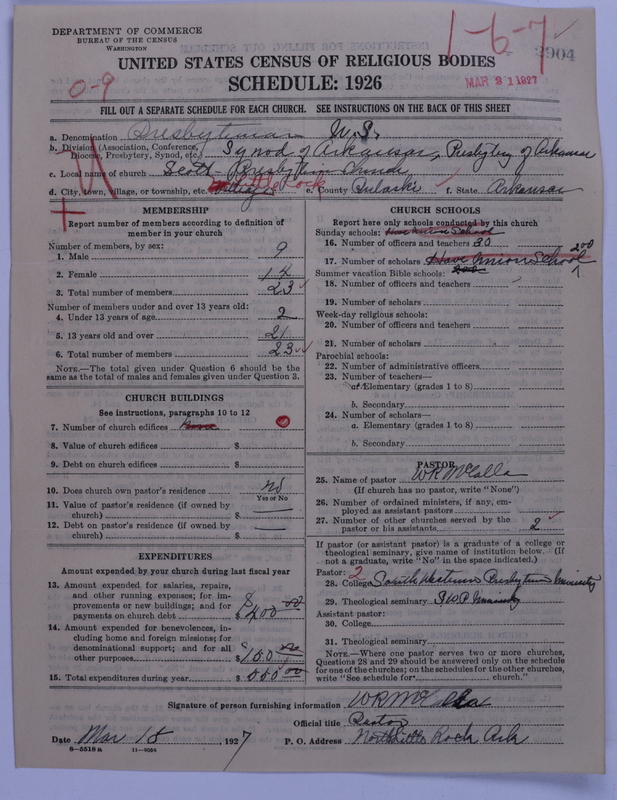 DEPARTMENT OF COMMERCE
BUREAU OF THE CENSUS
WASHINGTON
1-6-7
2904
UNITED STATES CENSUS OF RELIGIOUS BODIES
SCHEDULE: 1926
0-9
MAR 21 1927
FILL OUT A SEPARATE SCHEDULE FOR EACH CHURCH. SEE INSTRUCTIONS ON THE BACK OF THIS SHEET
a. Denomination Presbyterian U.S.
b. Division (Association, Conference, Diocese, Presbytery, Synod, etc.) Synod of Arkansas, Presbytery of Arkansas
c. Local name of church Scott Presbyterian Church
d. City, town, village, or township, etc. Village Little Rock e. County Pulaski f. State Arkansas
MEMBERSHIP
Report number of members according to definition of
member in your church
Number of members, by sex:
1. Male 9
2. Female 14
3. Total number of members 23
Number of members under and over 13 years old:
4. Under 13 years of age 2
5. 13 years old and over 21
6. Total number of members 23
NOTE.—The total given under Question 6 should be the
same as the total of males and females given under Question 3.
CHURCH BUILDINGS
See instructions, paragraphs 10 to 12
7. Number of church edifices None
8. Value of church edifices $
9. Debt on church edifices $
10. Does church own pastor's residence no
Yes or No
11. Value of pastor's residence (if owned by
church) $
12. Debt on pastor's residence (if owned by
church) $
EXPENDITURES
Amount expended by your church during last fiscal year
13. Amount expended for salaries, repairs,
and other running expenses; for im-
provements or new buildings; and for
payments on church debt $400 00
14. Amount expended for benevolences, in-
cluding home and foreign missions; for
denominational support; and for all
other purposes $150 00
15. Total expenditures during year $550 00
CHURCH SCHOOLS
Report here only schools conducted by this church
Sunday schools: Have Union School
16. Number of officers and teachers 20
17. Number of scholars Have Union School 200
Summer vacation Bible schools:
18. Number of officers and teachers
19. Number of scholars
Week-day religious schools:
20. Number of officers and teachers
21. Number of scholars
Parochial schools:
22. Number of administrative officers
23. Number of teachers—
a. Elementary (grades 1 to 8)
b. Secondary
24. Number of scholars—
a. Elementary (grades 1 to 8)
b. Secondary
PASTOR
25. Name of pastor WR McCalla
(If church has no pastor, write "None")
26. Number of ordained ministers, if any, em-
ployed as assistant pastors
27. Number of other churches served by the
pastor or his assistants 2
If pastor (or assistant pastor) is a graduate of a college or
theological seminary, give name of institution below. (If
not a graduate, write "No" in the space indicated.)
Pastor: 2
28. College South Western Presbyterian University
29. Theological seminary S.W.P. University
Assistant pastor:
30. College
31. Theological seminary
NOTE.—Where one pastor serves two or more churches,
Questions 28 and 29 should be answered only on the schedule
for one of the churches; on the schedules for the other churches,
write "See schedule for church."
Signature of person furnishing information WR McCalla
Official title Pastor
Date Mar 18, 1927 P. O. Address North Little Rock Ark
8—5518 a 11—9054